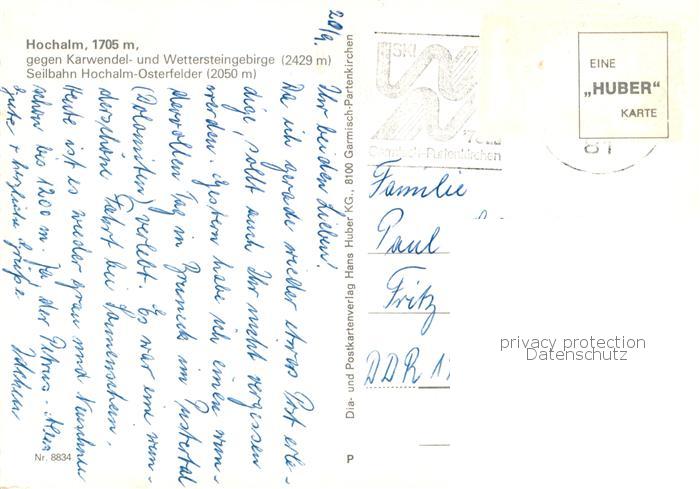 Hochalm, 1705 m,
gegen Karwendel- und Wettersteingebirge (2429 m)
Seilbahn Hochalm-Osterfelder (2050 m)
20/9.
Ihr beiden Lieben!
Da ich gerade wieder etwas Post erle-
dige, sollt auch Ihr nicht vergessen
werden. Gestern habe ich einen wun-
dervollen Tag in Bruneck im Pustertal
(Dolomiten) verlebt. Es war eine wun-
derschöne Fahrt bei Sonnenschein.
Heute ist es wieder grau und Neuschnee
schon bis 1200 m. Ja der Petrus. Alles
Gute + herzliche Grüße
Nr. 8834
Dia- und Postkartenverlag Hans Huber KG., 8100 Garmisch-Partenkirchen
P
SKI
78
Garmisch-Partenkirchen
EINE
„HUBER"
KARTE
81
Familie
Paul
Fritz
DDR 1
privacy protection
Datenschutz